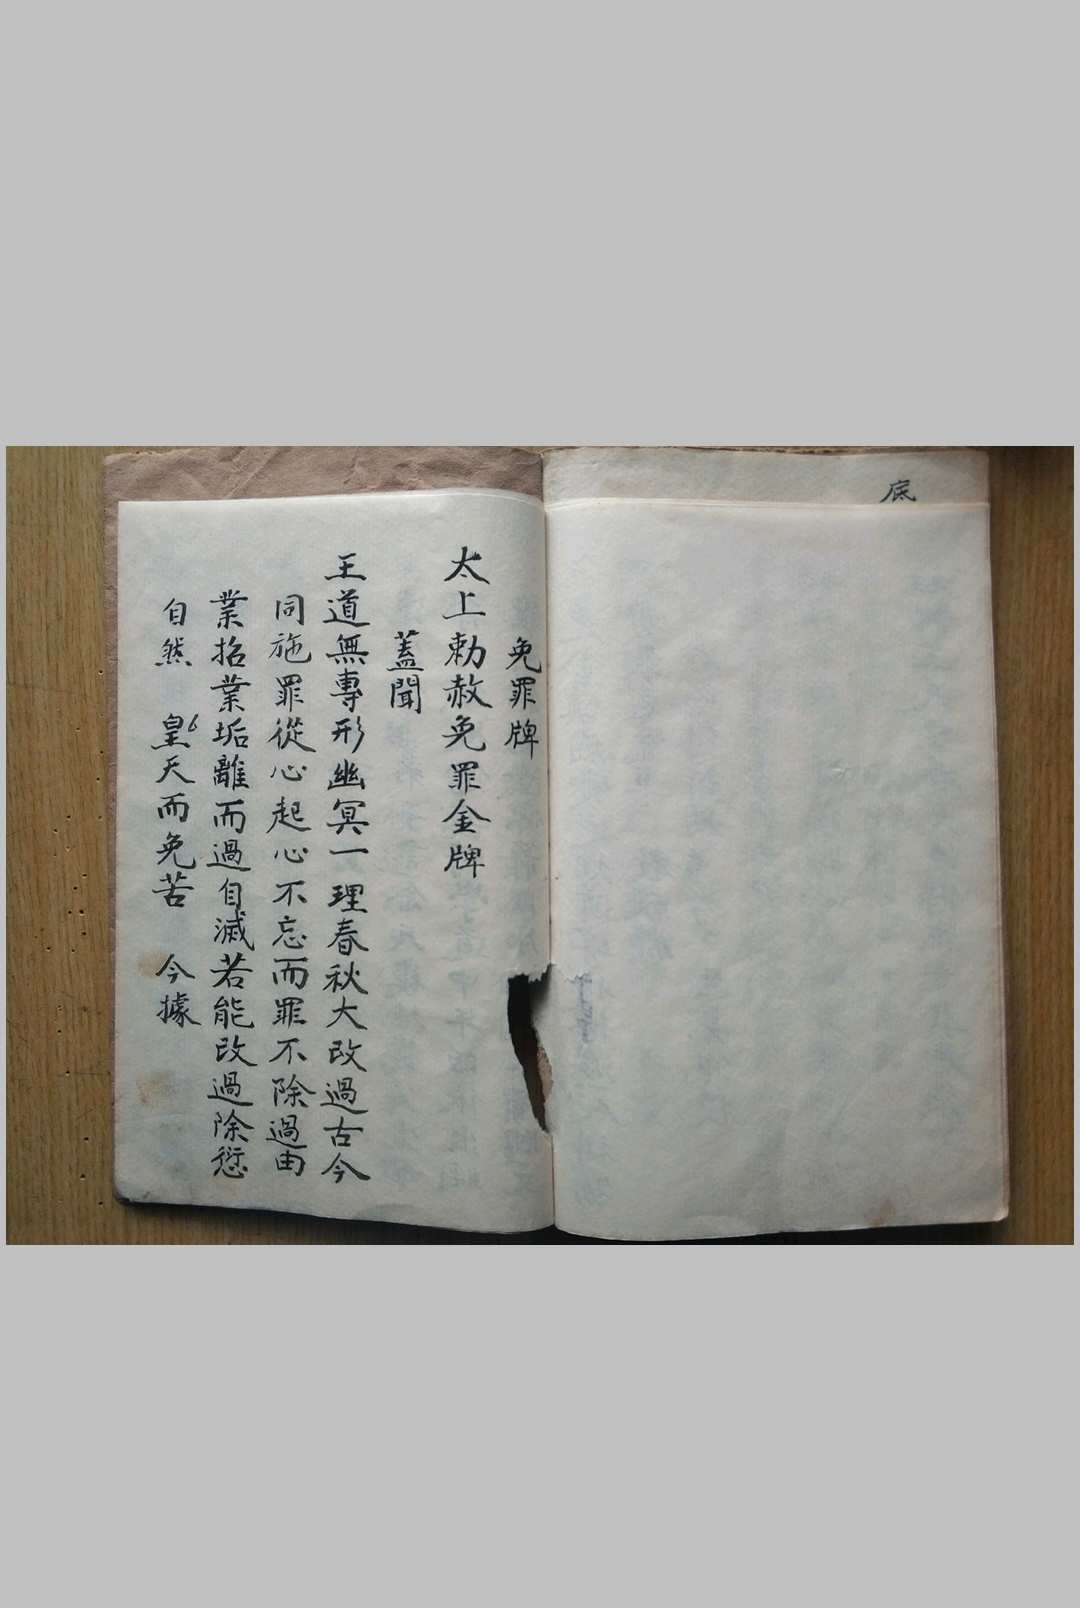 底
免罪牌
太上勅赦免罪金牌
蓋聞
王道無專形幽冥一理春秋大改過古今
同施罪從心起心不忘而罪不除過由
業招業垢離而過自滅若能改過除愆
自然　皇天而免苦　今據